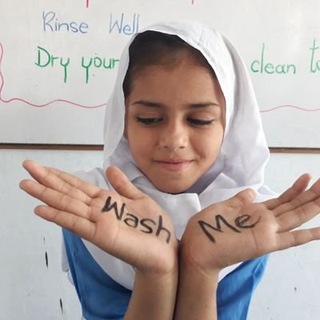 Rinse Well
Dry your
clean
Wash Me